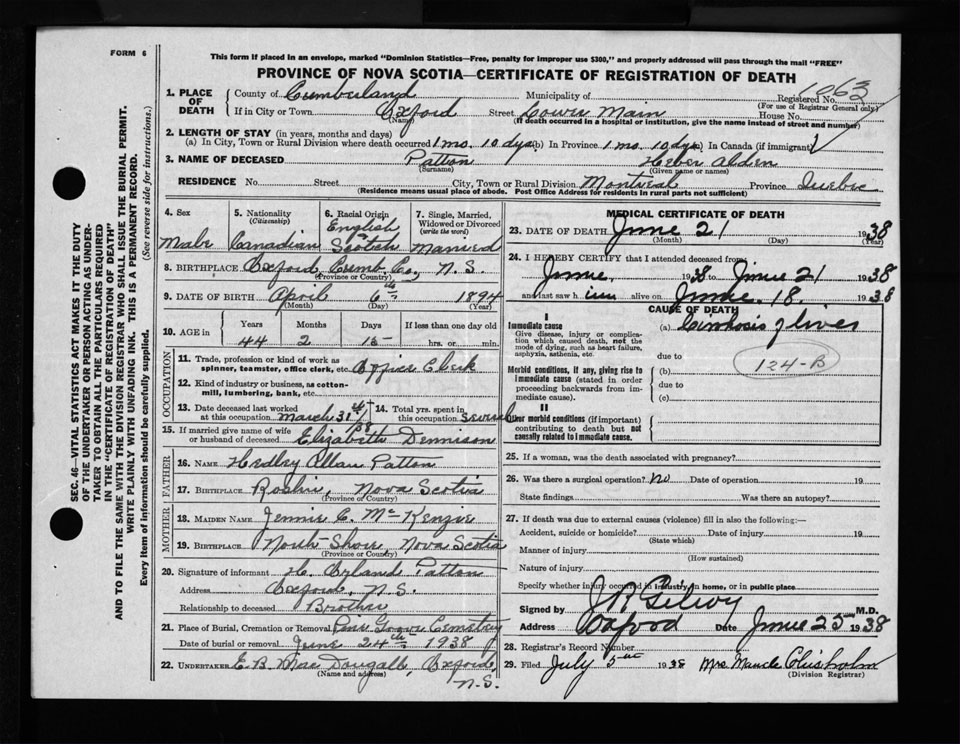 FORM 6
This form if placed in an envelope, marked "Dominion Statistics—Free, penalty for improper use $300," and properly addressed will pass through the mail "FREE"
PROVINCE OF NOVA SCOTIA—CERTIFICATE OF REGISTRATION OF DEATH
1. PLACE OF DEATH
County of Cumberland Municipality of Registered No. 1063
(For use of Registrar General only)
If in City or Town Oxford Street Lower Main House No.
(Name) (If death occurred in a hospital or institution, give the name instead of street and number)
2. LENGTH OF STAY (in years, months and days)
(a) In City, Town or Rural Division where death occurred 1 mo. 10 dys. (b) In Province 1 mo. 10 dys. (c) In Canada (if immigrant)
3. NAME OF DECEASED Patton Heber Alden
(Surname) (Given name or names)
RESIDENCE No. Street City, Town or Rural Division Montreal Province Quebec
(Residence means usual place of abode. Post Office Address for residents in rural parts not sufficient)
4. Sex
Male
5. Nationality
(Citizenship)
Canadian
6. Racial Origin
English
Scotch
7. Single, Married, Widowed or Divorced
(write the word)
Married
8. BIRTHPLACE Oxford Cumb. Co., N.S.
(Province or Country)
9. DATE OF BIRTH April 6th 1894
(Month) (Day) (Year)
10. AGE in
Years Months Days If less than one day old
44 2 15 hrs. or min.
OCCUPATION
11. Trade, profession or kind of work as spinner, teamster, office clerk, etc. Office Clerk
12. Kind of industry or business, as cotton-mill, lumbering, bank, etc.
13. Date deceased last worked at this occupation March 31st 14. Total yrs. spent in this occupation Several
15. If married give name of wife or husband of deceased Elizabeth Dennison
FATHER
16. NAME Hedley Allan Patton
17. BIRTHPLACE Roslin, Nova Scotia
(Province or Country)
MOTHER
18. MAIDEN NAME Jennie C. McKenzie
19. BIRTHPLACE North Shore, Nova Scotia
(Province or Country)
20. Signature of informant H. Ryland Patton
Address Oxford, N.S.
Relationship to deceased Brother
21. Place of Burial, Cremation or Removal Pine Grove Cemetery
Date of burial or removal June 24th 1938
22. UNDERTAKER E. B. MacDougall, Oxford, N.S.
(Name and address)
MEDICAL CERTIFICATE OF DEATH
23. DATE OF DEATH June 21 1938
(Month) (Day) (Year)
24. I HEREBY CERTIFY that I attended deceased from
June 1938 to June 21 1938
and last saw him alive on June 18, 1938
CAUSE OF DEATH
I
Immediate cause
Give disease, injury or complication which caused death, not the mode of dying, such as heart failure, asphyxia, asthenia, etc.
(a) Cirrhosis of liver
due to
124-B
Morbid conditions, if any, giving rise to immediate cause (stated in order proceeding backwards from immediate cause).
(b)
due to
(c)
II
Other morbid conditions (if important) contributing to death but not causally related to immediate cause.
25. If a woman, was the death associated with pregnancy?
26. Was there a surgical operation? No Date of operation 19
State findings Was there an autopsy?
27. If death was due to external causes (violence) fill in also the following:—
Accident, suicide or homicide? Date of injury 19
(State which)
Manner of injury
(How sustained)
Nature of injury
Specify whether injury occurred in industry, in home, or in public place
Signed by J R Gilroy M.D.
Address Oxford Date June 25 1938
28. Registrar's Record Number
29. Filed July 5th 1938 Mrs Maude Chisholm
(Division Registrar)
SEC. 46—VITAL STATISTICS ACT MAKES IT THE DUTY
OF THE UNDERTAKER OR PERSON ACTING AS UNDER-
TAKER TO OBTAIN ALL THE PARTICULARS REQUIRED
IN THE "CERTIFICATE OF REGISTRATION OF DEATH"
AND TO FILE THE SAME WITH THE DIVISION REGISTRAR WHO SHALL ISSUE THE BURIAL PERMIT.
WRITE PLAINLY WITH UNFADING INK. THIS IS A PERMANENT RECORD.
Every item of information should be carefully supplied. (See reverse side for instructions.)